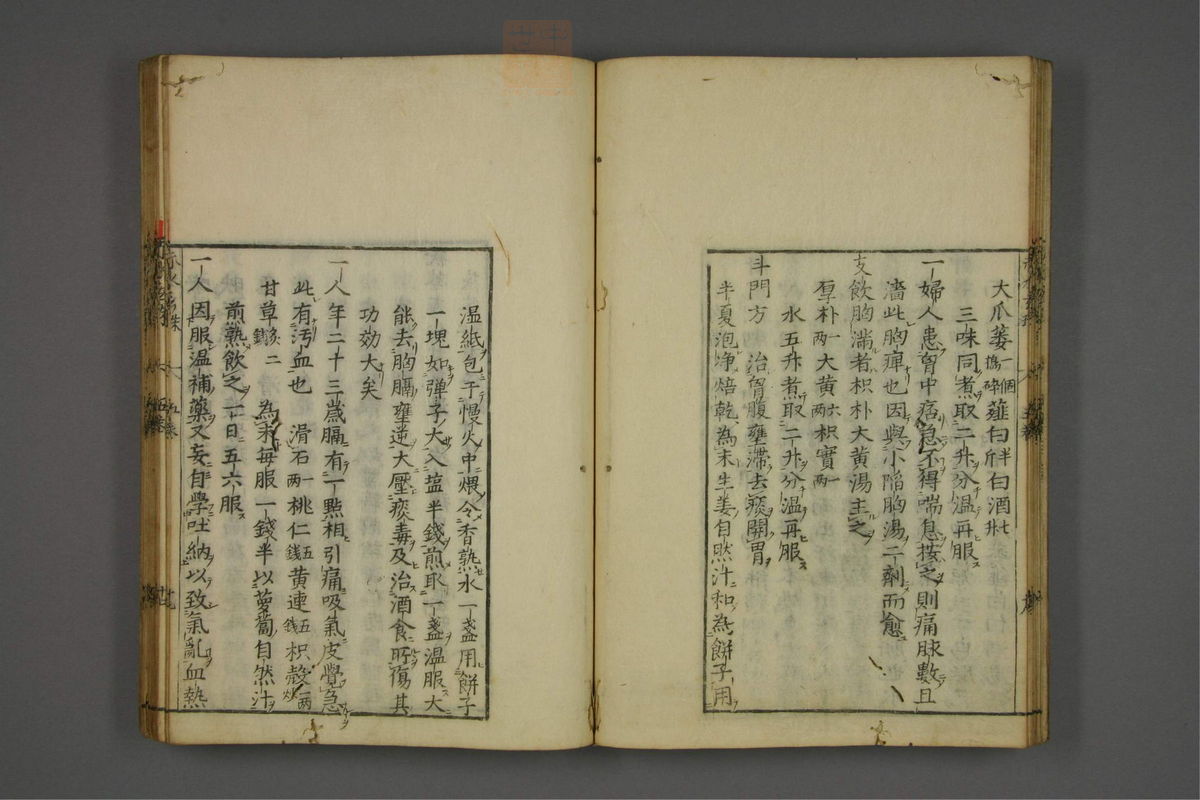 大瓜蔞一個搗碎薤白半斤白酒七
三味同煮取二升分温再服
一婦人患胷中痞急不得喘息按之則痛脉數且
濇此胸痺也因與小陷胸湯二劑而愈
支飲胸滿者枳朴大黄湯主之
厚朴一兩大黄六兩枳實一兩
水五升煮取二升分温再服
斗門方　治胷腹壅滯去痰開胃
半夏泡净焙乾為末生姜自然汁和為餅子用
温紙包于慢火中煨令香熟水一盞用餅子
一塊如弾子大入塩半錢煎取一盞温服大
能去胸膈壅逆大壓痰毒及治酒食所傷其
功効大矣
一人年二十三歳膈有一點相引痛吸氣皮覺急
此有汚血也　滑石一兩桃仁五錢黄連五錢枳殻一兩炒
甘草炙二錢　為末每服一錢半以蘿蔔自然汁
煎熟飲之一日五六服
一人因服温補藥又妄自學吐納以致氣亂血熱